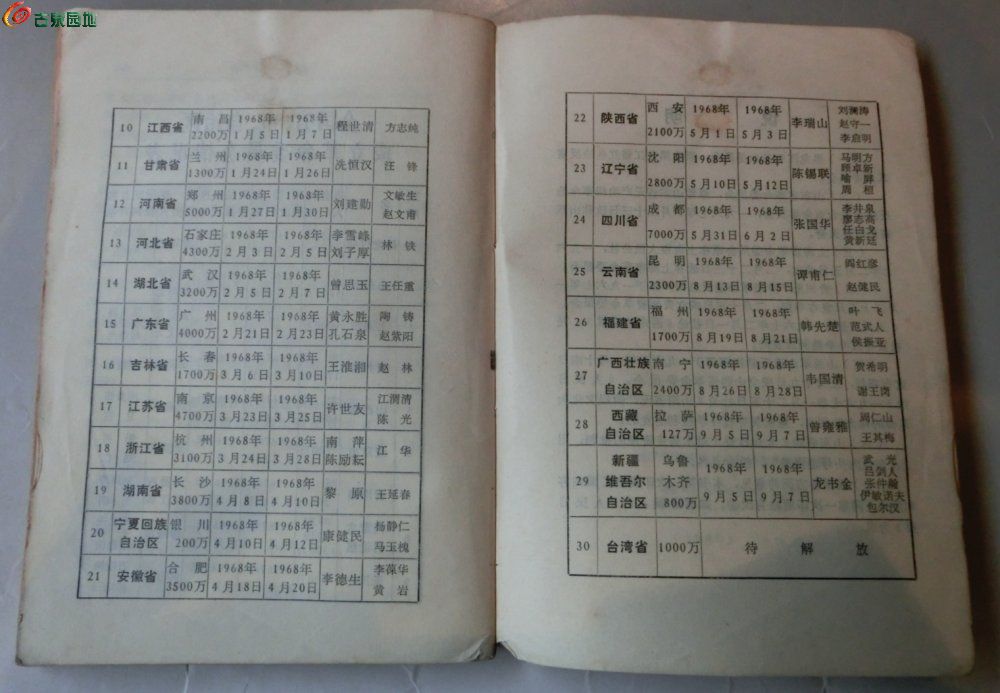 古泉园地
10 江西省 南昌 2200万 1968年1月5日 1968年1月7日 程世清 方志纯
11 甘肃省 兰州 1300万 1968年1月24日 1968年1月26日 冼恒汉 汪锋
12 河南省 郑州 5000万 1968年1月27日 1968年1月30日 刘建勋 文敏生 赵文甫
13 河北省 石家庄 4300万 1968年2月3日 1968年2月5日 李雪峰 刘子厚 林铁
14 湖北省 武汉 3200万 1968年2月5日 1968年2月7日 曾思玉 王任重
15 广东省 广州 4000万 1968年2月21日 1968年2月23日 黄永胜 孔石泉 陶铸 赵紫阳
16 吉林省 长春 1700万 1968年3月6日 1968年3月10日 王淮湘 赵林
17 江苏省 南京 4700万 1968年3月23日 1968年3月25日 许世友 江渭清 陈光
18 浙江省 杭州 3100万 1968年3月24日 1968年3月28日 南萍 陈励耘 江华
19 湖南省 长沙 3800万 1968年4月8日 1968年4月10日 黎原 王延春
20 宁夏回族自治区 银川 200万 1968年4月10日 1968年4月12日 康健民 杨静仁 马玉槐
21 安徽省 合肥 3500万 1968年4月18日 1968年4月20日 李德生 李葆华 黄岩
22 陕西省 西安 2100万 1968年5月1日 1968年5月3日 李瑞山 刘澜涛 赵守一 李启明
23 辽宁省 沈阳 2800万 1968年5月10日 1968年5月12日 陈锡联 马明方 顾卓新 喻屏 周桓
24 四川省 成都 7000万 1968年5月31日 1968年6月2日 张国华 李井泉 廖志高 任白戈 黄新廷
25 云南省 昆明 2300万 1968年8月13日 1968年8月15日 谭甫仁 阎红彦 赵健民
26 福建省 福州 1700万 1968年8月19日 1968年8月21日 韩先楚 叶飞 范式人 侯振亚
27 广西壮族自治区 南宁 2400万 1968年8月26日 1968年8月28日 韦国清 贺希明 谢王岗
28 西藏自治区 拉萨 127万 1968年9月5日 1968年9月7日 曾雍雅 周仁山 王其梅
29 新疆维吾尔自治区 乌鲁木齐 800万 1968年9月5日 1968年9月7日 龙书金 武光 吕剑人 张仲瀚 伊敏诺夫 包尔汉
30 台湾省 1000万 待解放